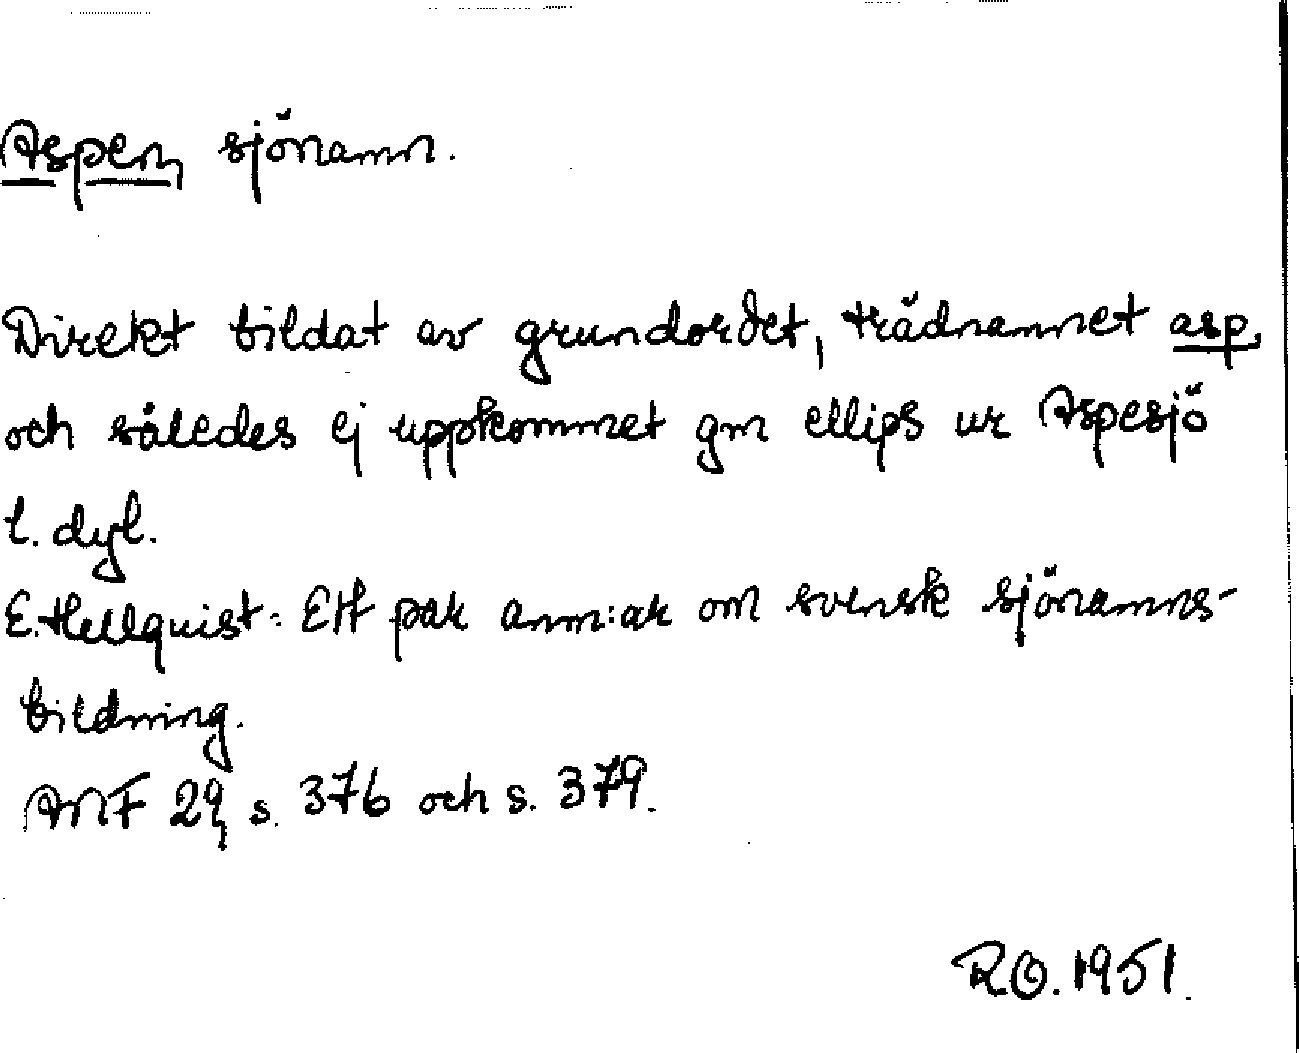 Aspen, sjönamn.
Direkt bildat av grundordet, trädnamnet asp,
och således ej uppkommet gm ellips ur Aspesjö
l. dyl.
E. Hellquist: Ett par anm:ar om svensk sjönamns-
bildning.
ANF 29, s. 376 och s. 379.
R.O. 1951.